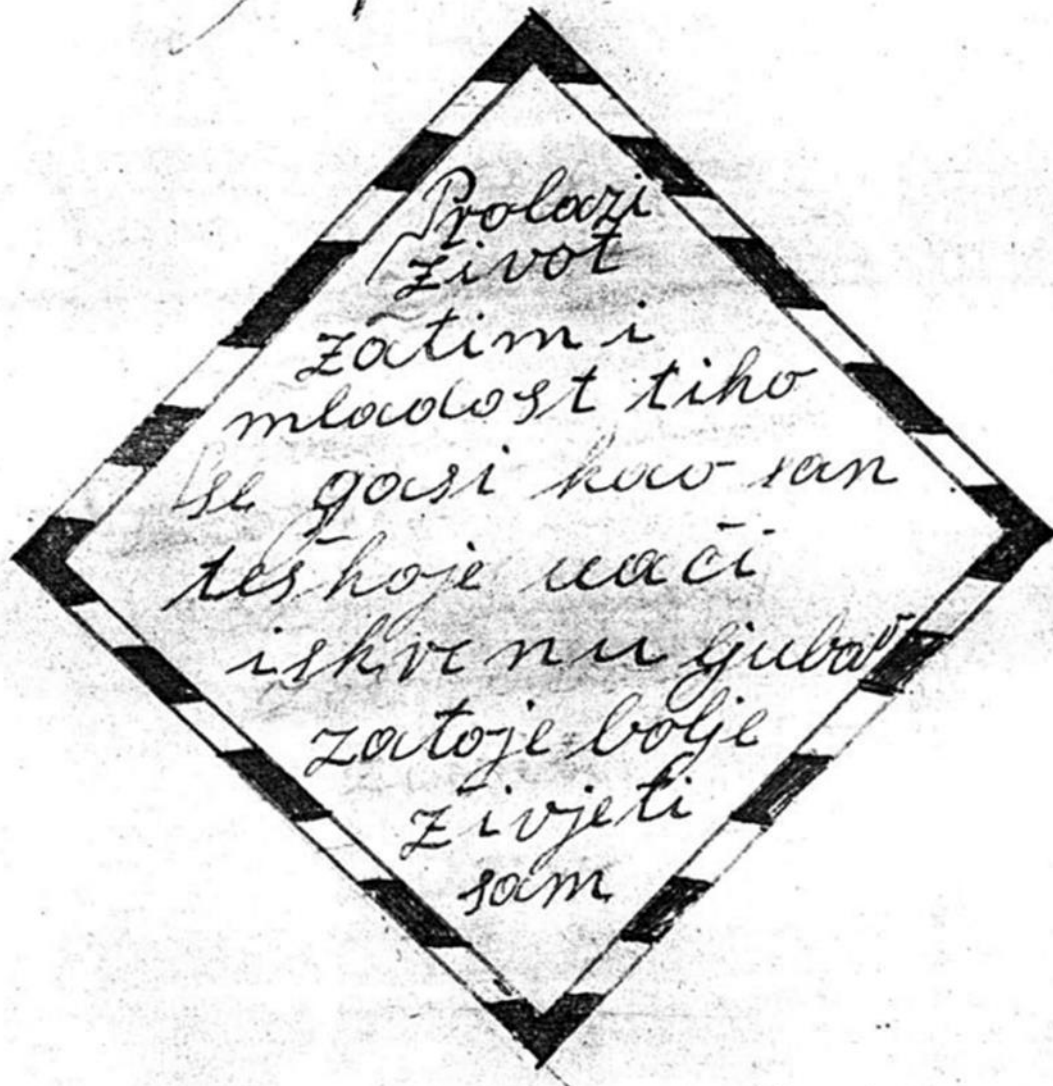 Prolazi
život
zatim i
mladost tiho
se gasi kao san
teškoje uači
iskrenu ljubav
zatoje bolje
živjeti
sam